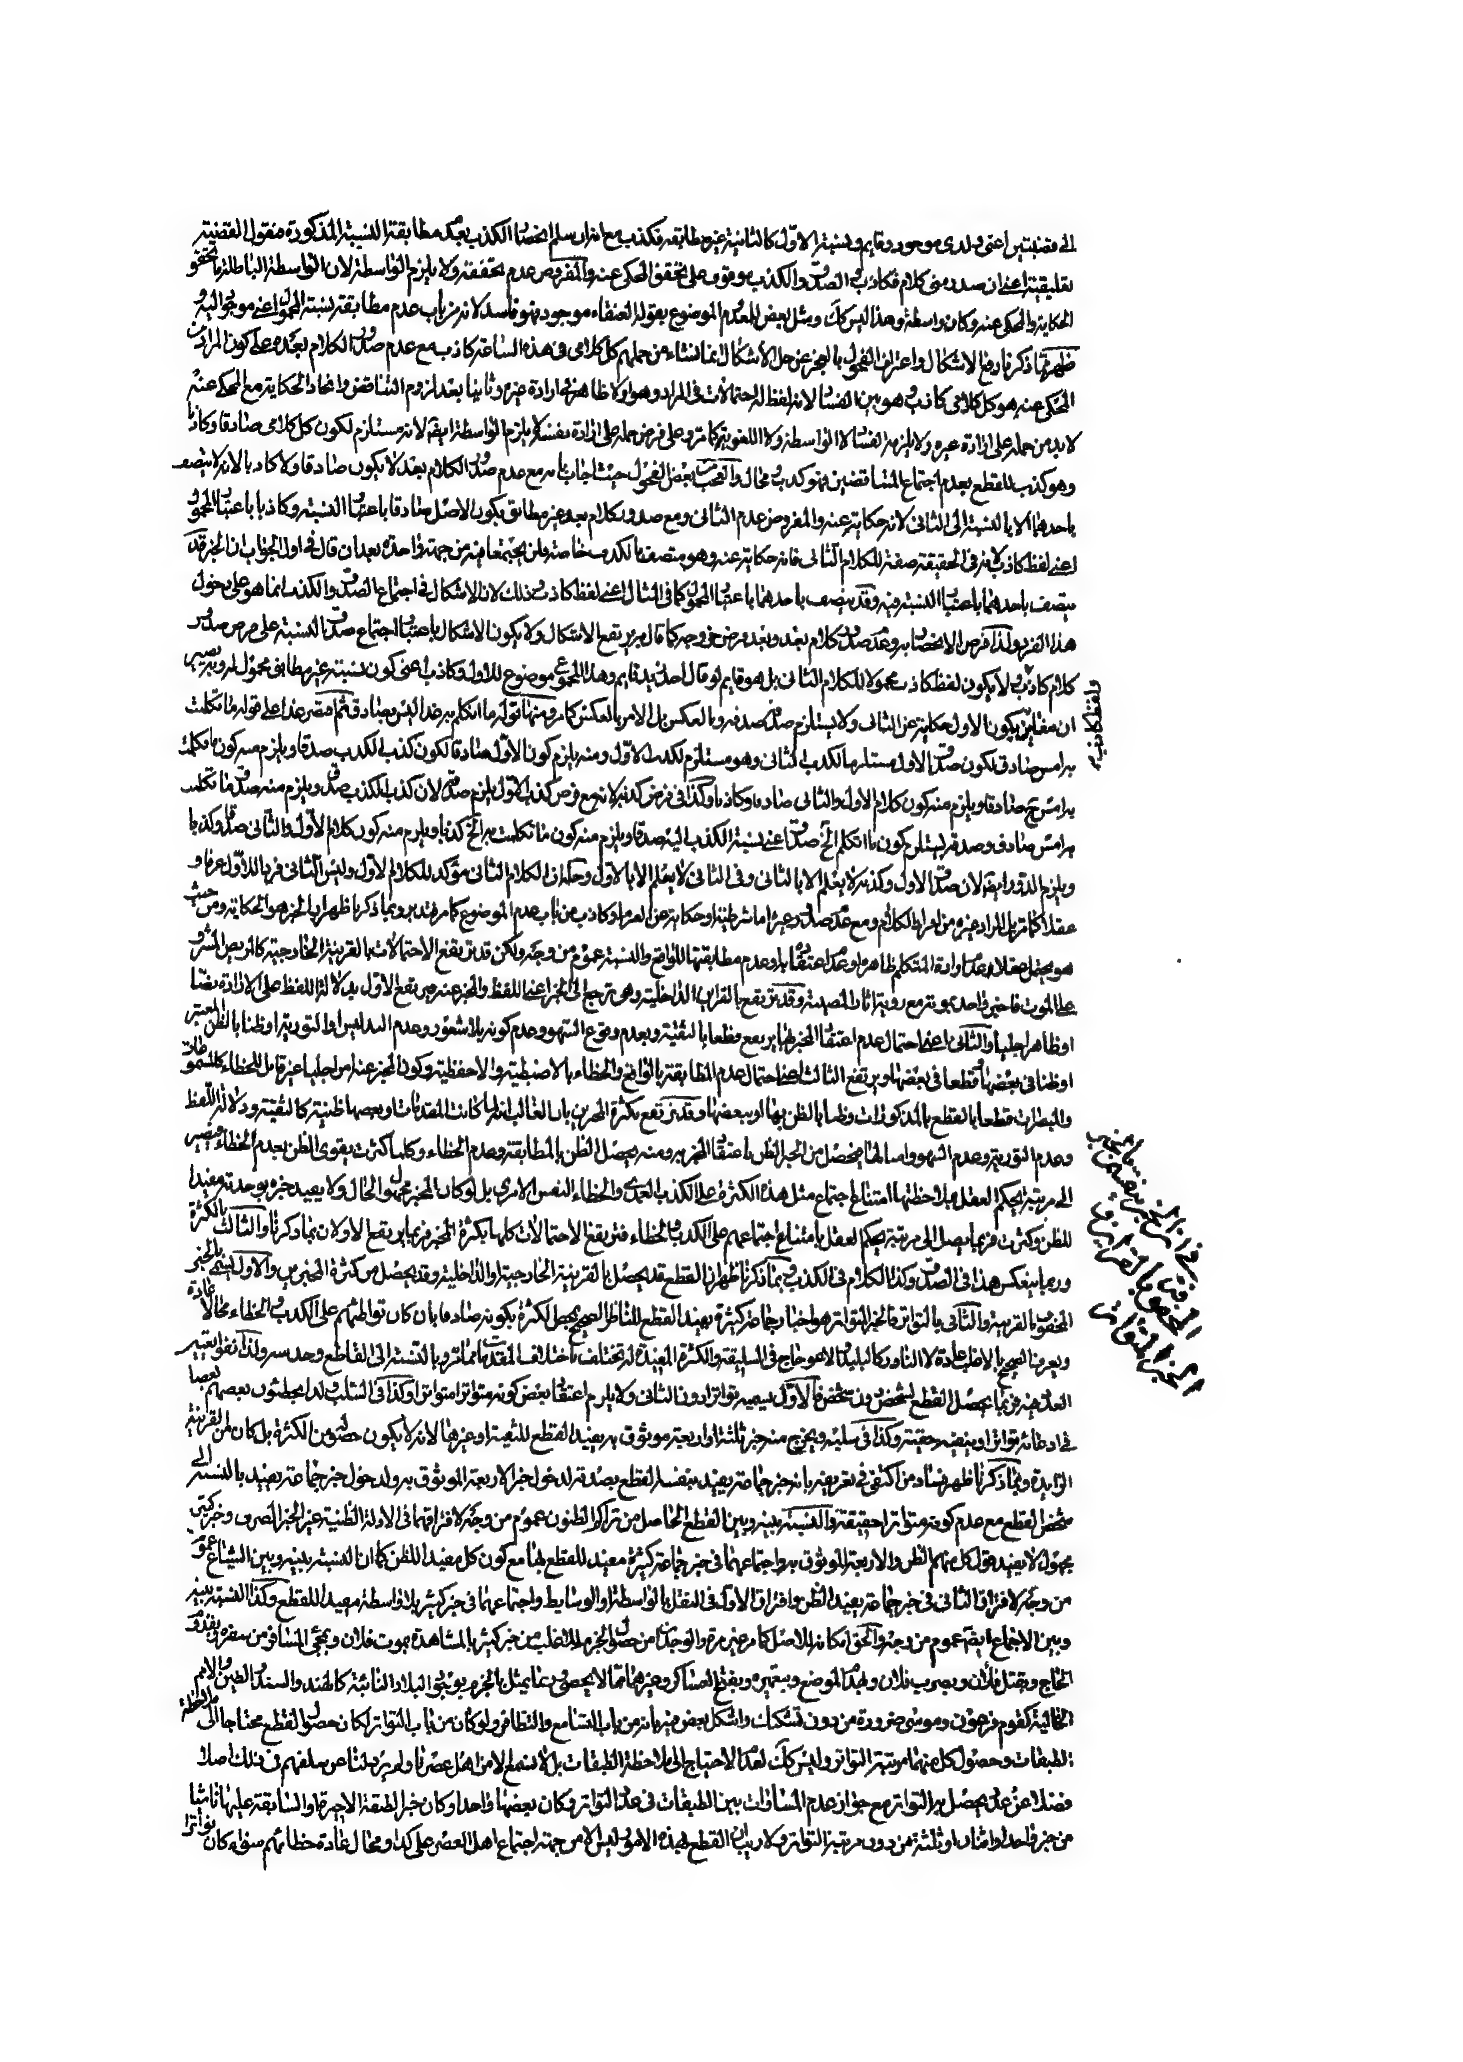 الى قضيتين اعنى ولدى موجود وقايم ونسبة الاول كالثانية غير مطابقة فكذب مع انه ان سلم انحصار الكذب بعدم مطابقة النسبة المذكورة فنقول القضية
تعليقية اعنى ان صدر منى كلام فكاذب والصدق والكذب موقوف على تحقق المحكى عنه والمفروض عدم تحققه ولا يلزم الواسطة لان الواسطة الباطلة ما تحقق
الحكاية والمحكى عنه وكان واسطة وهذا ليس كك ومثل بعض لعدم الموضوع بقوله العنقاء موجود فهو فاسد لانه من باب عدم مطابقة نسبة المحمول اعنى موجود اليه و
ظهر بما ذكرنا دفع الاشكال واعتراف الفحول بالعجز عن حل الاشكال انما نشاء من حملهم كل كلامى فى هذه الساعة كاذب مع عدم صدور الكلام بعده على كون المراد من
المحكى عنه هو كل كلامى كاذب وهو بين الفساد لانه لفظ له احتمالات فى المراد وهو اولا ظاهر فى ارادة غيره وثانيا بعد لزوم التناقض واتحاد الحكاية مع المحكى عنه
لا بد من حمله على ارادة غيره ولا يلزم الفساد لا الواسطة ولا اللغوية كما مر وعلى فرض حمله على ارادة نفسه لا يلزم الواسطة ايضا لانه مستلزم لكون كل كلامى صادقا وكاذبا
وهو كذب للقطع بعدم اجتماع المتناقضين فهو كذب ومحال والعجب من بعض الفحول حيث اجاب بانه مع عدم صدور الكلام بعد لا يكون صادقا ولا كاذبا لانه لا يتصف
باحدهما الا بالنسبة الى الثانى لانه حكاية عنه والمفروض عدم الثانى ومع صدور كلام بعد غير مطابق يكون الاصل صادقا باعتبار النسبة وكاذبا باعتبار المحمول
اعنى لفظ كاذب لانه فى الحقيقة صفة للكلام الثانى فانه حكاية عنه وهو متصف بالكذب خاصة فلن يجتمعا فيه من جهة واحدة بعد ان قال فى اول الجواب ان الخبر قد
يتصف باحدهما باعتبار النسبة فيه وقد يتصف باحدهما باعتبار المحمول كما فى المثال اعنى لفظ كاذب وذلك لان الاشكال فى اجتماع الصدق والكذب انما هو على دخول
هذا الفرد ولذا فرض الانحصار به وعدم صدور كلام بعد وبعد فرض خروجه كما قال يرتفع الاشكال ولا يكون الاشكال باعتبار اجتماع صدق النسبة على فرض صدور
كلام كاذب ولا يكون لفظ كاذب محمولا للكلام الثانى بل هو قايم لو قال احد زيد قايم وهذا المجموع موضوع للاول وكاذب اعنى كون نسبته غير مطابق محمول له وبه يصير
ولفظ كاذب م
ان مفاده يكون الاول حكاية عن الثانى ولا يستلزم صدق صدقه وبالعكس بل الامر بالعكس كما مر ومنها قوله ما اتكلم به غدا ليس بصادق ثم اقتصر غدا على قوله ما تكلمت
به امس صادق لكون صدق الاول مستلزما لكذب الثانى وهو مستلزم لكذب الاول ومنه يلزم كون الاول صادقا لكون كذب الكذب صدقا ويلزم منه كون ما تكلمت
به امس صادقا ويلزم منه كون كلام الاول والثانى صادقا وكاذبا وكذا فى فرض كذبه لانه مع فرض كذب الاول يلزم صدق لان كذب الكذب صدق ويلزم منه صدق ما تكلمت
به امس صادق وصدقه يستلزم كون ما اتكلم الخ صدقا اعنى نسبة الكذب اليه صدقا ويلزم منه كون ما تكلمت به الخ كذبا ويلزم منه كون كلام الاول والثانى صدقا وكذبا
ويلزم الدور ايضا لان صدق الاول وكذبه لا يعلم الا بالثانى وفى الثانى لا يعلم الا بالاول وحله ان الكلام الثانى مؤكد للكلام الاول وليس الثانى فردا للاول عرفا و
عقلا كما مر بل المراد غيره من افراد الكلام ومع عدم صدور غيره اما شرطية او حكاية عن العدم او كاذب من باب عدم الموضوع كما مر فتدبر وبما ذكرنا ظهر ان الخبر هو الحكاية ومن حيث
هو يحتمل عقلا عدم ارادة المتكلم ظاهره وعدم اعتقاد به وعدم مطابقتها للواقع والنسبة عموم من وجه ولكن قد يرتفع الاحتمالات بالقرينة الخارجية كالمريض المشرف
على الموت فاخبر واحد بموته مع رؤية اثار المصيبة وقد يرتفع بالقراين الداخلية وهى ترجع الى الخبر اعنى اللفظ والمخبر عنه فيرتفع الاول بدلالة اللفظ على الارادة نصا
او ظاهرا جليا والثانى اعنى احتمال عدم اعتقاد المخبر بها يرتفع قطعا بالثقية وبعدم وقوع السهو وعدم كونه بلا شعور وعدم التدليس او التورية او ظنا بالظن المعتبر
او ظنا فى بعضها وقطعا فى بعضها ويرتفع الثالث اعنى احتمال عدم المطابقة بالواقع والخطاء بالاضبطية والاحفظية وكون المخبر عنه امرا جليا غير قابل للخطاء كالمسموعات
والمبصرات قطعا بالقطع بالمذكورات وظنا بالظن بها او ببعضها وقد يرتفع بكثرة المخبرين بان الغالب انها كانت المقدمات وبعضها ظنية كالثقية ودلالة اللفظ
وعدم التورية وعدم السهو وامثالها فيحصل من الخبر الظن باعتقاد المخبر به ومنه يحصل الظن بالمطابقة وعدم الخطاء وكلما كثرت يقوى الظن بعدم الخطاء فيصير
الى مرتبة يحكم العقل بملاحظتها امتناع اجتماع مثل هذه الكثرة على الكذب العمدى والخطاء النفس الامرى بل لو كان المخبر مجهول الحال ولا يفيد خبره بوحدته مفيدا
للظن وكثرت فربما يصل الى مرتبة يحكم العقل بامتناع اجتماعهم على الكذب والخطاء فيرتفع الاحتمالات كلها بكثرة المخبر فربما يرتفع الاولان بما ذكرنا والثالث بالكثرة
وربما ينعكس هذا فى الصدق وكذا الكلام فى الكذب وبما ذكرنا ظهر ان القطع قد يحصل بالقرينة الخارجية او الداخلية وقد يحصل من كثرة المخبرين والاول يسمى بالخبر
المحفوف بالقرينة والثانى بالتواتر فالخبر المتواتر هو اخبار جماعة كثيرة يفيد القطع للناظر الصحيح يحصل لكثرة بكونه صادقا بان كان تواطئهم على الكذب والخطاء محالا عادة
ويعرف الصحيح بالاغلب عادة لا النادر كالبليد والاعوجاج فى السليقة والكثرة المفيدة له تختلف باختلاف المقدمات مما مر وبالنسبة الى القاطع وحدسه ولذا نفوا تعيين
العدد فيه فربما يحصل القطع لشخص دون شخص فالاول يسميه تواترا دون الثانى ولا يلزم اعتقاد بعض كونه متواترا متواترا وكذا فى السلب ولذا يخطئون بعضهم بعضا
فى ادعائه تواترا وبنفيه حقيقة وكذا فى سلبه ويخرج منه خبر ثلثة او اربعة موثوق به يفيد القطع للثقية او غيرها لانه لا يكون حصوله من الكثرة بل كان من القرينة
الزايدة وبما ذكرنا ظهر فساد من اكتفى فى تعريفه بانه خبر جماعة يفيد بنفسه القطع بصدقه لدخول خبر الاربعة الموثوق به ولدخول خبر جماعة يفيد بالنسبة الى
شخص القطع مع عدم كونه متواترا حقيقة والنسبة بينه وبين القطع الحاصل من تراكم الظنون عموم من وجه لافتراقهما فى الادلة الظنية غير الخبر الصرف وخبر كثير
مجهول لا يفيد قول كل منهم الظن والاربعة الموثوق به واجتماعهما فى خبر جماعة كثيرة مفيد للقطع بها مع كون كل مفيدا للظن كما ان النسبة بينه وبين الشياع عموم
من وجه لافتراق الثانى فى خبر جماعة يفيد الظن وافتراق الاول فى النقل بالواسطة او الوسايط واجتماعهما فى خبر كثير بلا واسطة مفيدا للقطع وكذا النسبة بينه
وبين الاجماع ايضا عموم من وجه والحق امكانه للاصل كما مر غير مرة والوجدان من حصول الجزم للاغلب من خبر كثير بالمشاهدة بموت فلان وبمجئ المسافر من سفره وبقدوم
الحاج وبقتل فلان وبضرب فلان وبهدم الموضع وبتعميره وبفتح العساكر وغيرها مما لا يحصى وربما يمثل بالجزم بوجود البلاد النائية كالهند والسند والصين والامم
الخالية كقوم فرعون وموسى ضرورة من دون تشكيك واشكل بعض فيه بانه من باب التسامع والتظافر ولو كان من باب التواتر لكان حصول القطع محتاجا الى ملاحظة
الطبقات وحصول كل منها مرتبة التواتر وليس كك لعدم الاحتياج الى ملاحظة الطبقات بل لا نسمع الا من اهل عصرنا ولم يزيدلنا عن سلفهم فى ذلك اصلا
فضلا عن عدد يحصل به التواتر مع جواز عدم المساوات بين الطبقات فى عدد التواتر فكان بعضها واحدا وكان خبر الطبقة الاخيرة والسابقة عليها ناشئا
من خبر واحد او اثنان او ثلثة من دون مرتبة التواتر ولا ريب ان القطع بهذه الامور ليس الا من جهة اجتماع اهل العصر على كذا ومحال عادة خطائهم سواء كان تواترا
فى ان الخبر ينقسم
الى قسمين
المحفوف بالقراين و
الخبر المتواتر